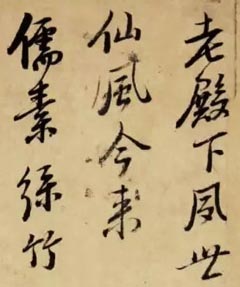 老殿下夙世
仙風今来
儒素綠竹